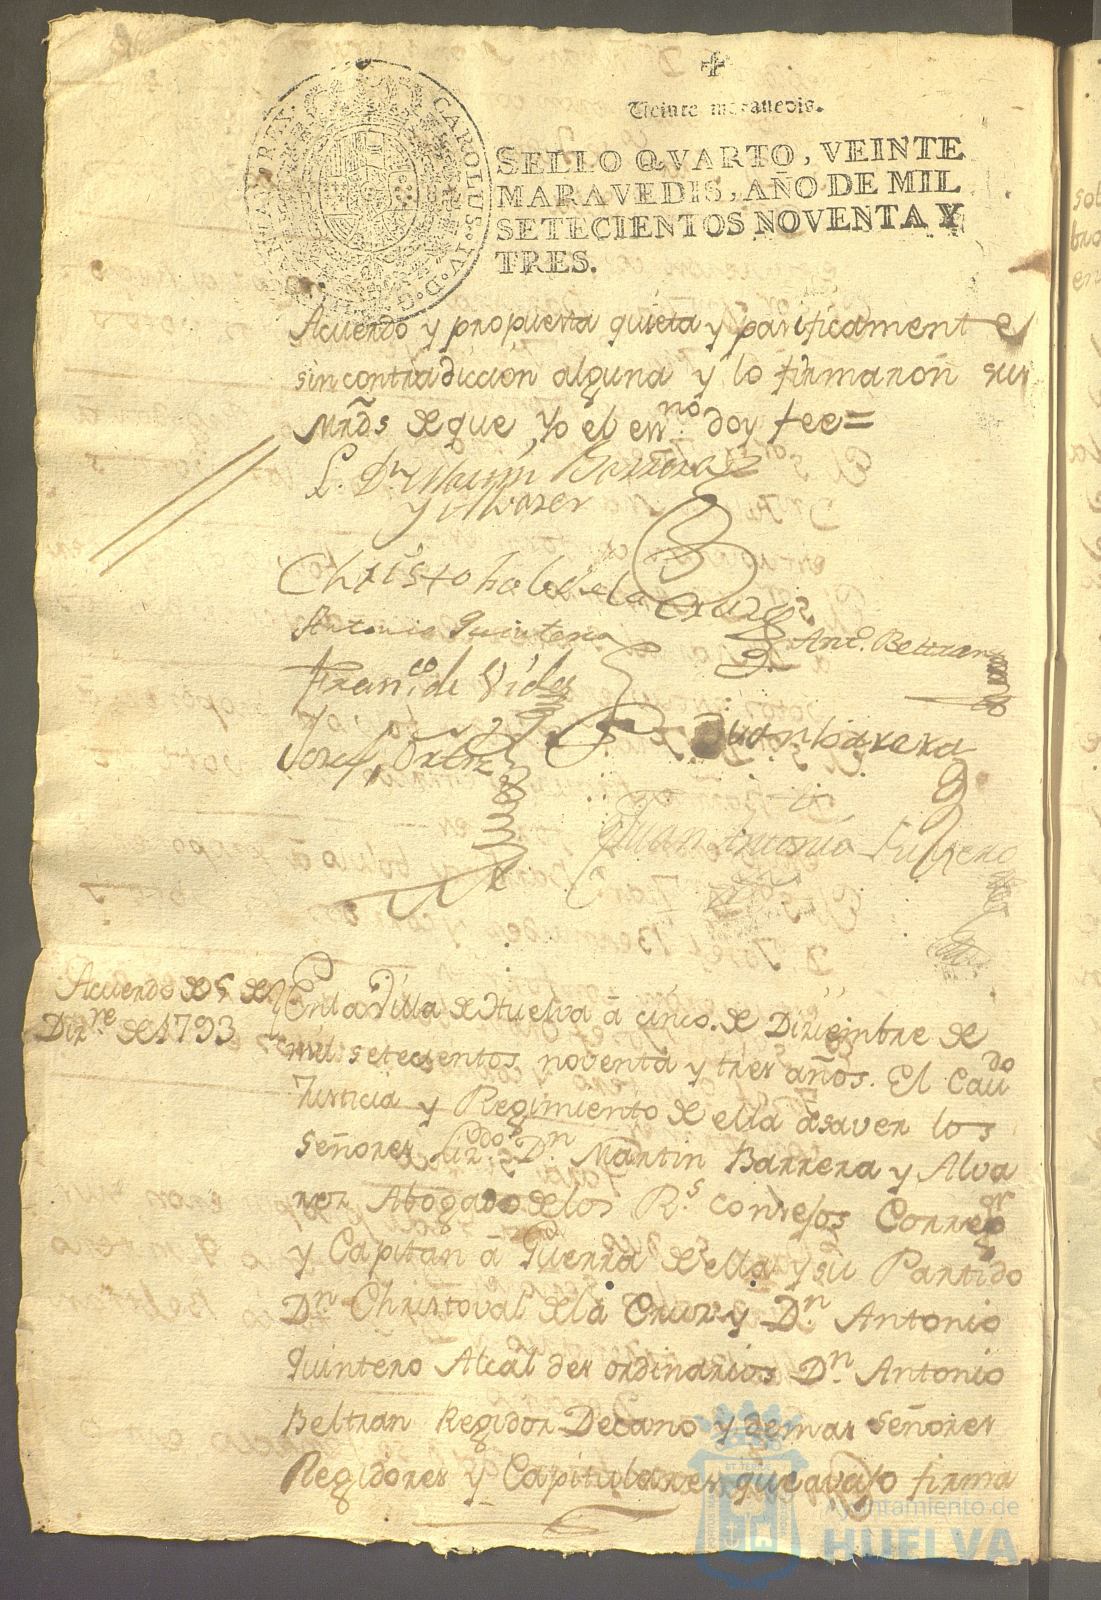 Veinte maravedis.
SELLO QVARTO, VEINTE
MARAVEDIS, AÑO DE MIL
SETECIENTOS NOVENTA Y
TRES.
CAROLUS IV D. G.
HISPANIAR. REX.
Acuerdo y propuesta quieta y pacificamente
sin contradiccion alguna y lo firmaron sus
Mrds de que Yo el essno. doy fee=
L. Dn Martin Barrera
y Alvarez
Christobal de la Cruz
Antonio Quintero
Anto. Beltran
Franco. de Vides
Josef Ortiz
Juan barera
Juan Antonio
Acuerdo de 5 de
Dizre de 1793
En la Villa de Huelva â cinco de Diziembre de
mil setecientos noventa y tres años. El Cavdo
Justicia y Regimiento de ella asaver los
Señores Lizdo. Dn. Martin Barrera y Alva
rez Abogado de los Rs. Consejos Corregor
y Capitan â Guerra de ella y su Partido
Dn. Christoval de la Cruz y Dn. Antonio
Quintero Alcaldes ordinarios Dn. Antonio
Beltran Regidor Decano y demas Señores
Regidores y Capitulares que avajo firma
Ayuntamiento de
HUELVA